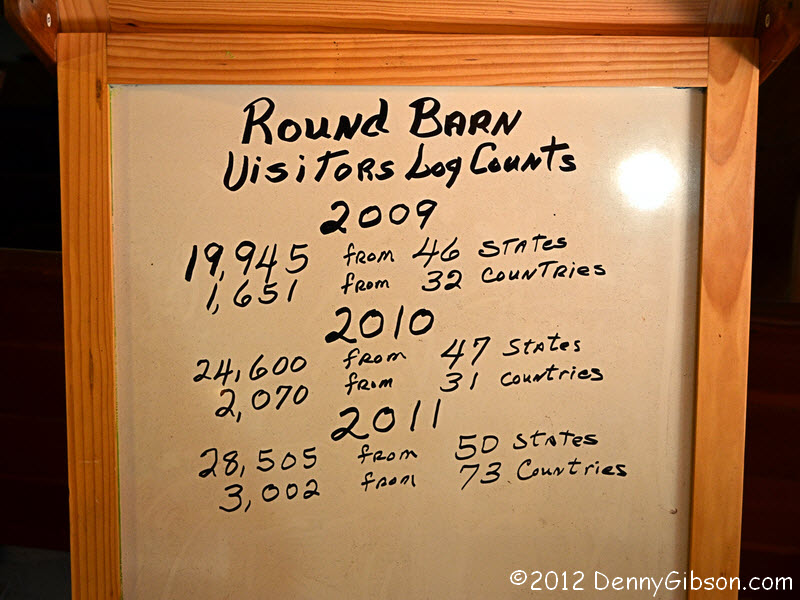 Round Barn
Visitors Log Counts
2009
19,945 from 46 States
1,651 from 32 Countries
2010
24,600 from 47 States
2,070 from 31 Countries
2011
28,505 from 50 States
3,002 from 73 Countries
©2012 DennyGibson.com